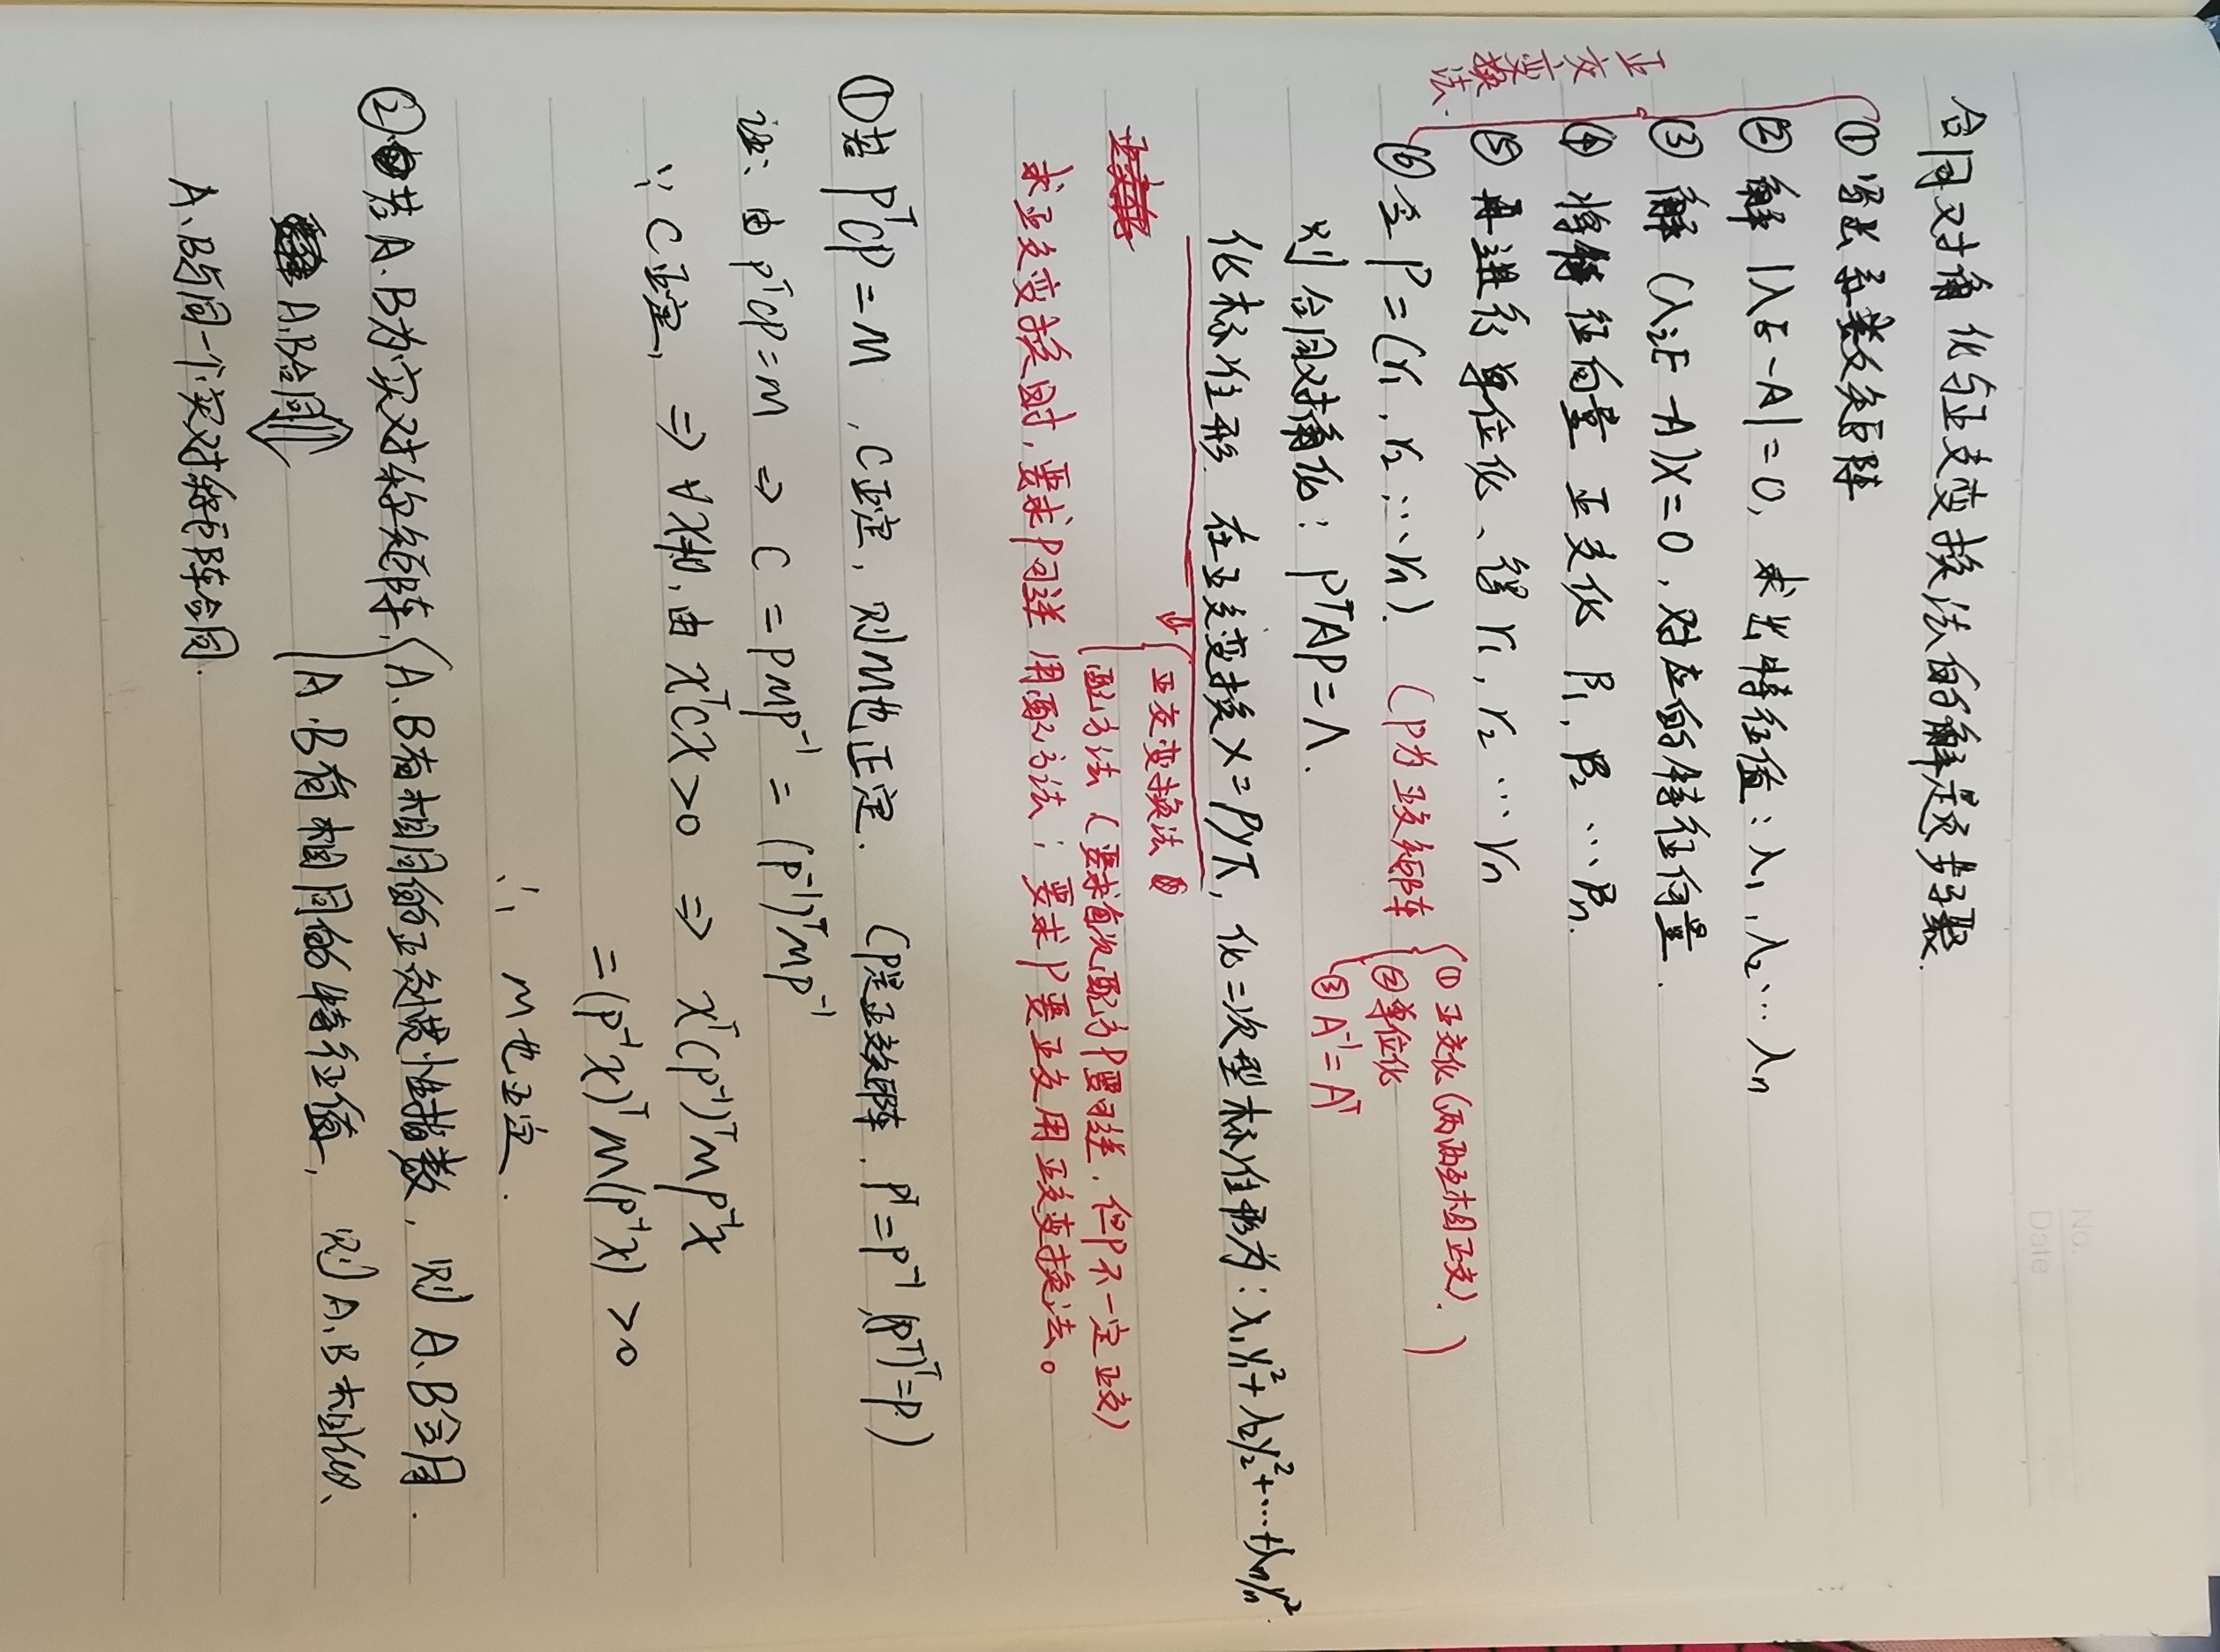 No.
Date
合同对角化与正交变换法的解题步骤.
① 写出系数矩阵
② 解 |λE-A|=0, 求出特征值: λ₁, λ₂ … λn
③ 解 (λᵢE-A)X=0, 对应的特征向量.
④ 将特征向量 正交化 β₁, β₂ … βn.
⑤ 再进行单位化、得 r₁, r₂ … rn
正交变换法.
⑥ 令 P=(r₁, r₂, … rn). (P为正交矩阵
① 正交化(两两互相正交).
② 单位化
③ A⁻¹=Aᵀ
)
则 合同对角化: PᵀAP=Λ.
化标准形. 在正交变换X=PY下, 化二次型标准形为: λ₁y₁²+λ₂y₂²+…+λnyn²
⇓ 正交变换法
配方法 (要求首次配方P要可逆, 但P不一定正交)
求正交变换时, 要求P可逆 用配方法; 要求P要正交用正交变换法。
① 若 PᵀCP=M , C正定, 则M也正定. (P是正交矩阵, Pᵀ=P⁻¹, (Pᵀ)ᵀ=P.)
证: 由 PᵀCP=M ⇒ C = PMP⁻¹ = (P⁻¹)ᵀMP⁻¹
∵ C正定, ⇒ ∀X≠0, 由 XᵀCX>0 ⇒ Xᵀ(P⁻¹)ᵀMP⁻¹X
= (P⁻¹X)ᵀM(P⁻¹X) >0
∴ M也正定.
② 若A、B为实对称矩阵, A、B有相同的正负惯性指数, 则 A、B合同.
A、B有相同的特征值, 则A、B相似、
A、B合同 ⇕
A、B与同一个实对称矩阵合同.